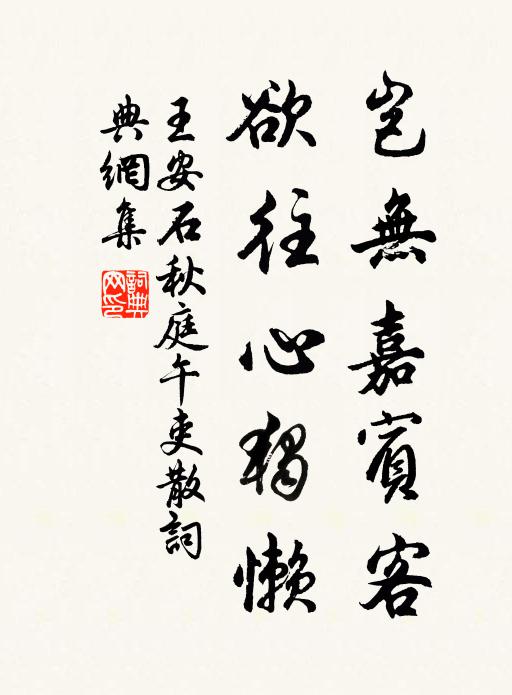 豈無嘉賓客
欲往心獨懶
王安石秋庭午吏散詞
典網集
詞典
网印